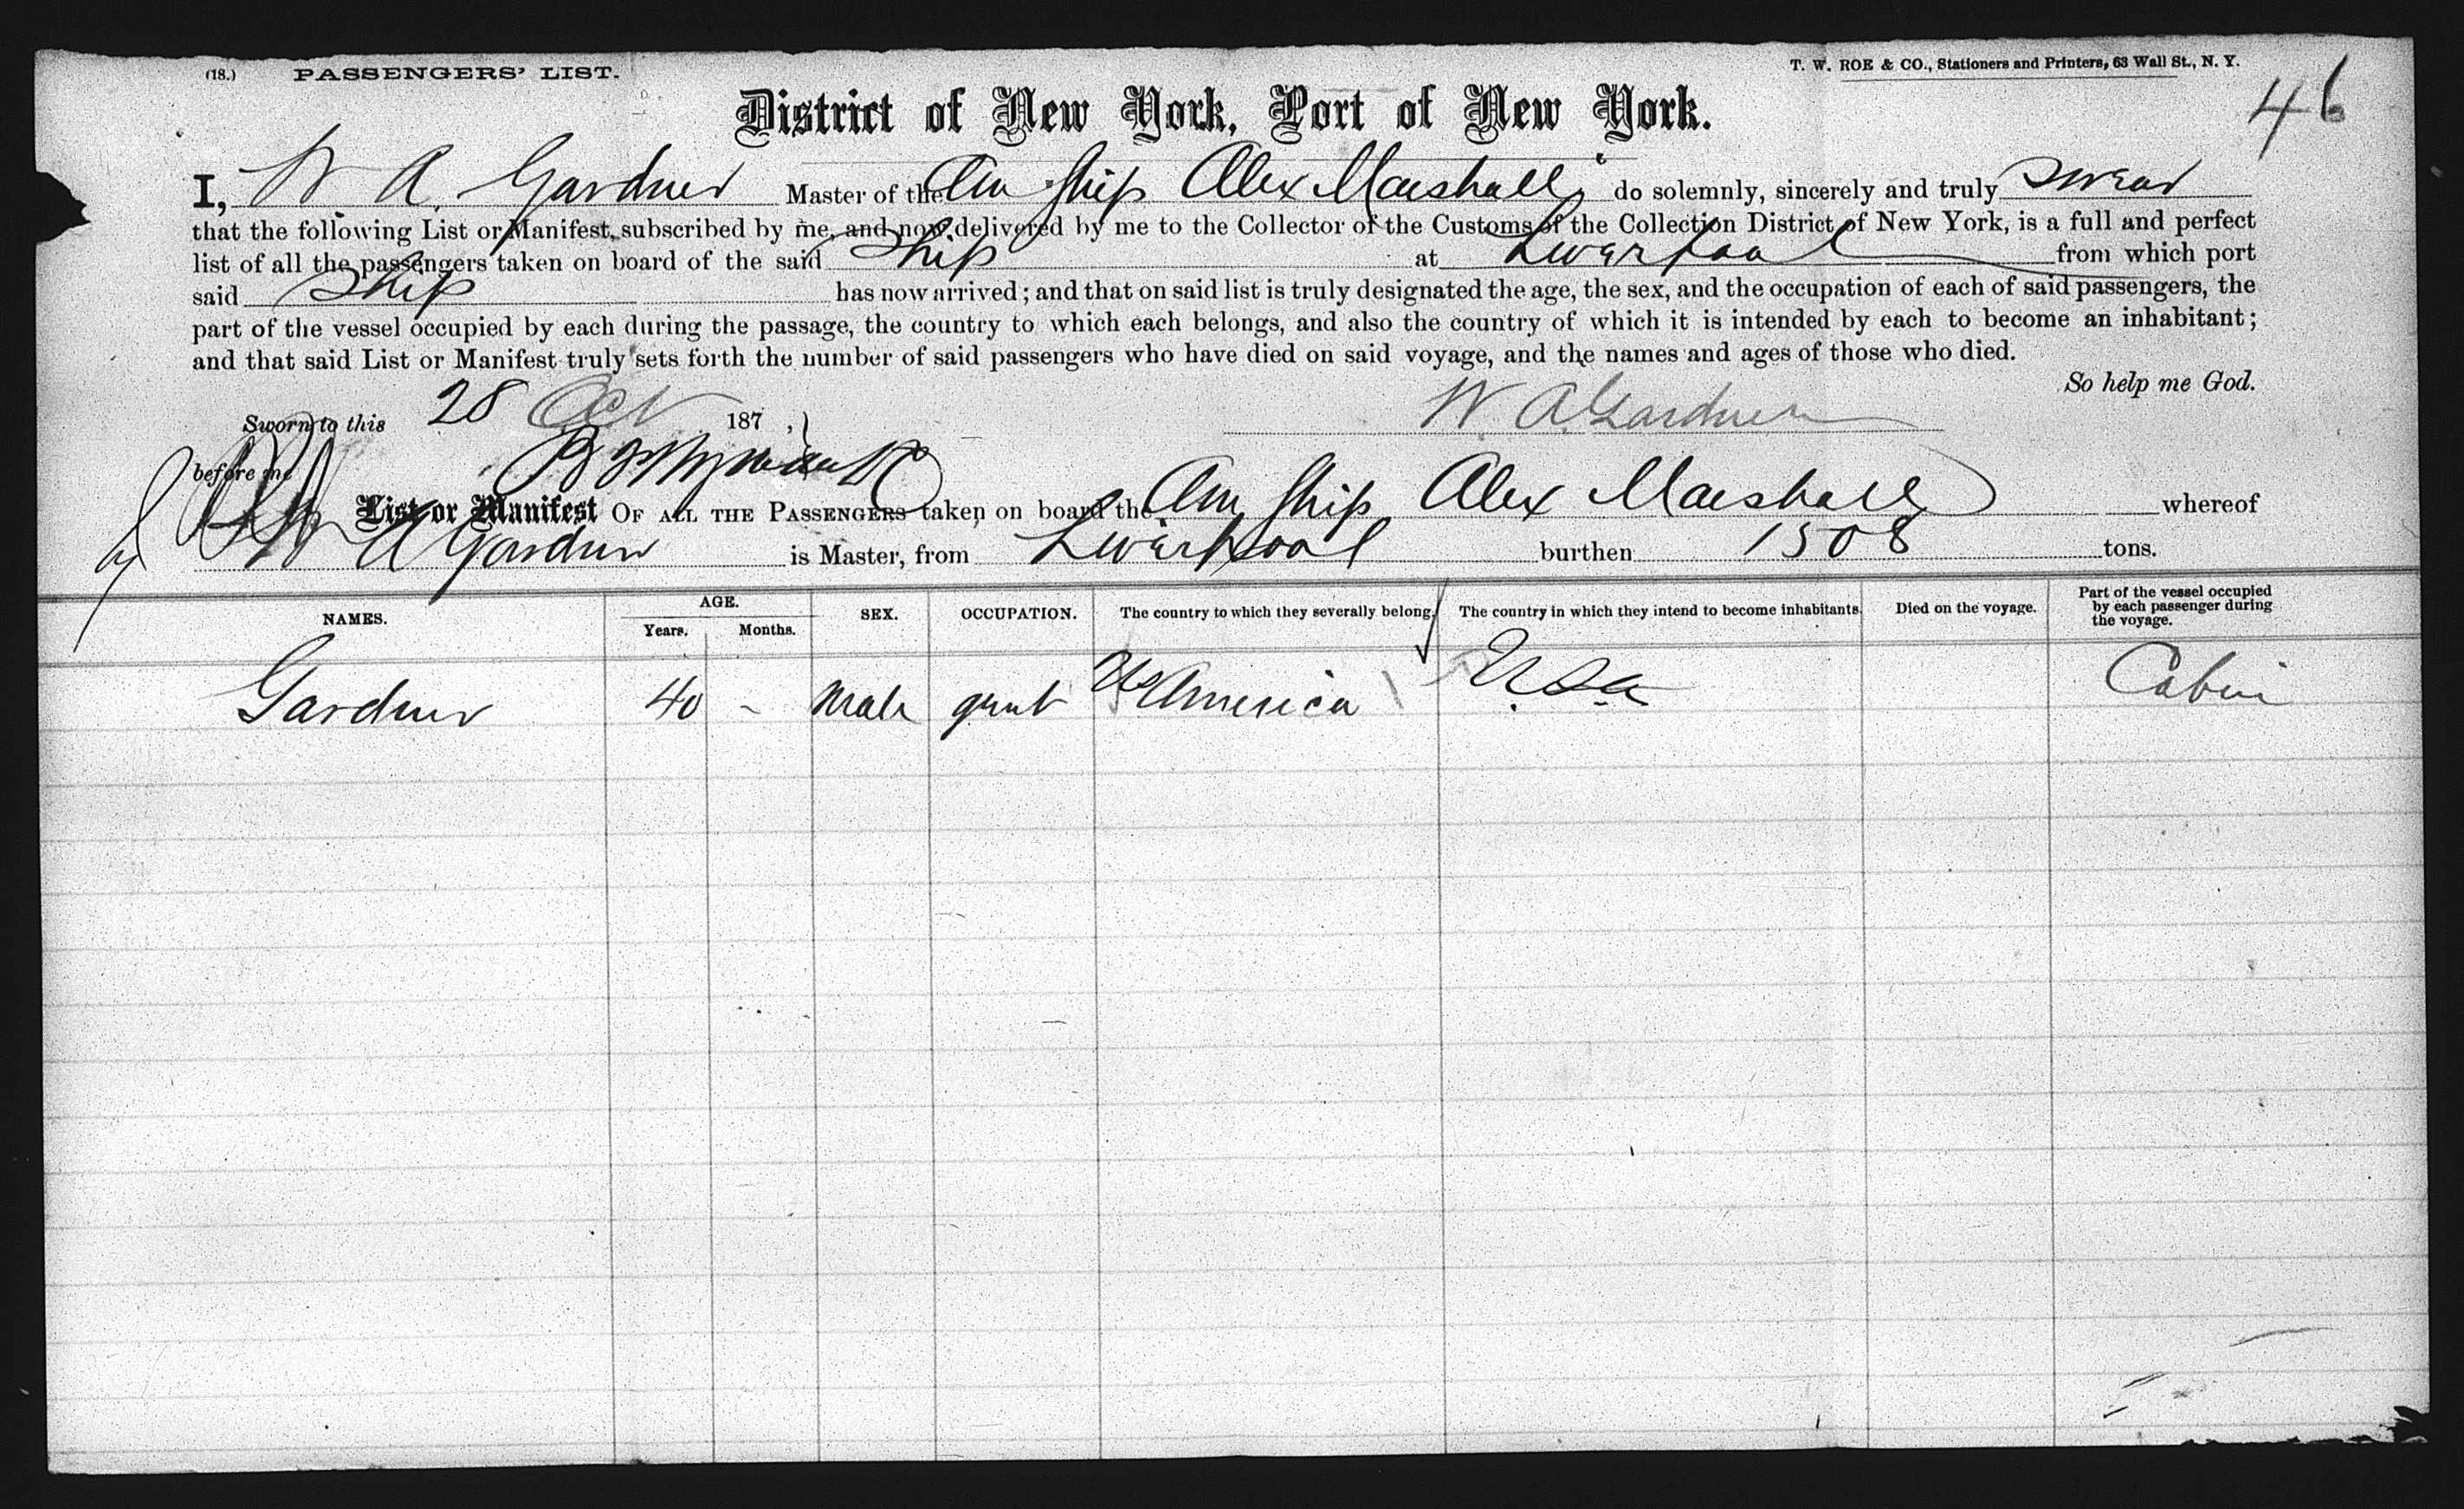 (18.) PASSENGERS' LIST.
T. W. ROE & CO., Stationers and Printers, 63 Wall St., N. Y.
46
District of New York, Port of New York.
I, W A. Gardner Master of the Am Ship Alex Marshall, do solemnly, sincerely and truly swear
that the following List or Manifest, subscribed by me, and now delivered by me to the Collector of the Customs of the Collection District of New York, is a full and perfect
list of all the passengers taken on board of the said Ship at Liverpool from which port
said Ship has now arrived; and that on said list is truly designated the age, the sex, and the occupation of each of said passengers, the
part of the vessel occupied by each during the passage, the country to which each belongs, and also the country of which it is intended by each to become an inhabitant;
and that said List or Manifest truly sets forth the number of said passengers who have died on said voyage, and the names and ages of those who died.
So help me God.
Sworn to this 28 Oct 187 ,
W. A. Gardner
before me
List or Manifest OF ALL THE PASSENGERS taken on board the Am Ship Alex Marshall whereof
W A Gardner is Master, from Liverpool burthen 1508 tons.
NAMES. AGE. Years. Months. SEX. OCCUPATION. The country to which they severally belong. The country in which they intend to become inhabitants. Died on the voyage. Part of the vessel occupied by each passenger during the voyage.
Gardner 40 - Male gent US America U.S.a Cabin